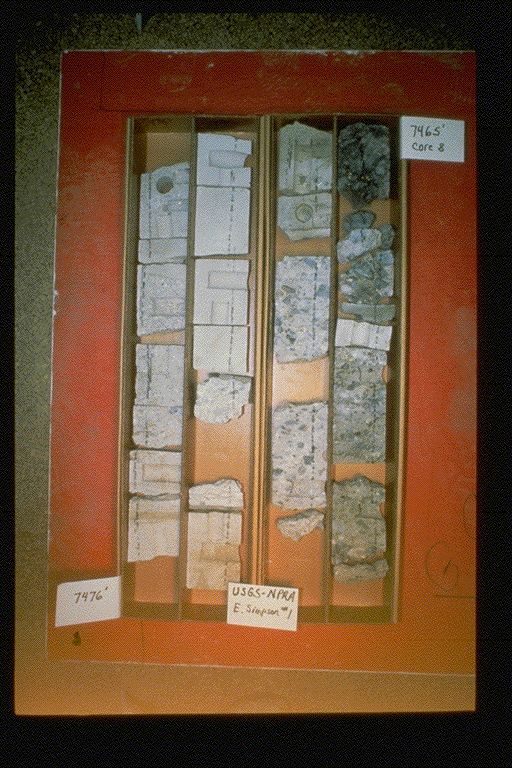 7465'
Core 8
7476'
USGS-NPRA
E. Simpson #1